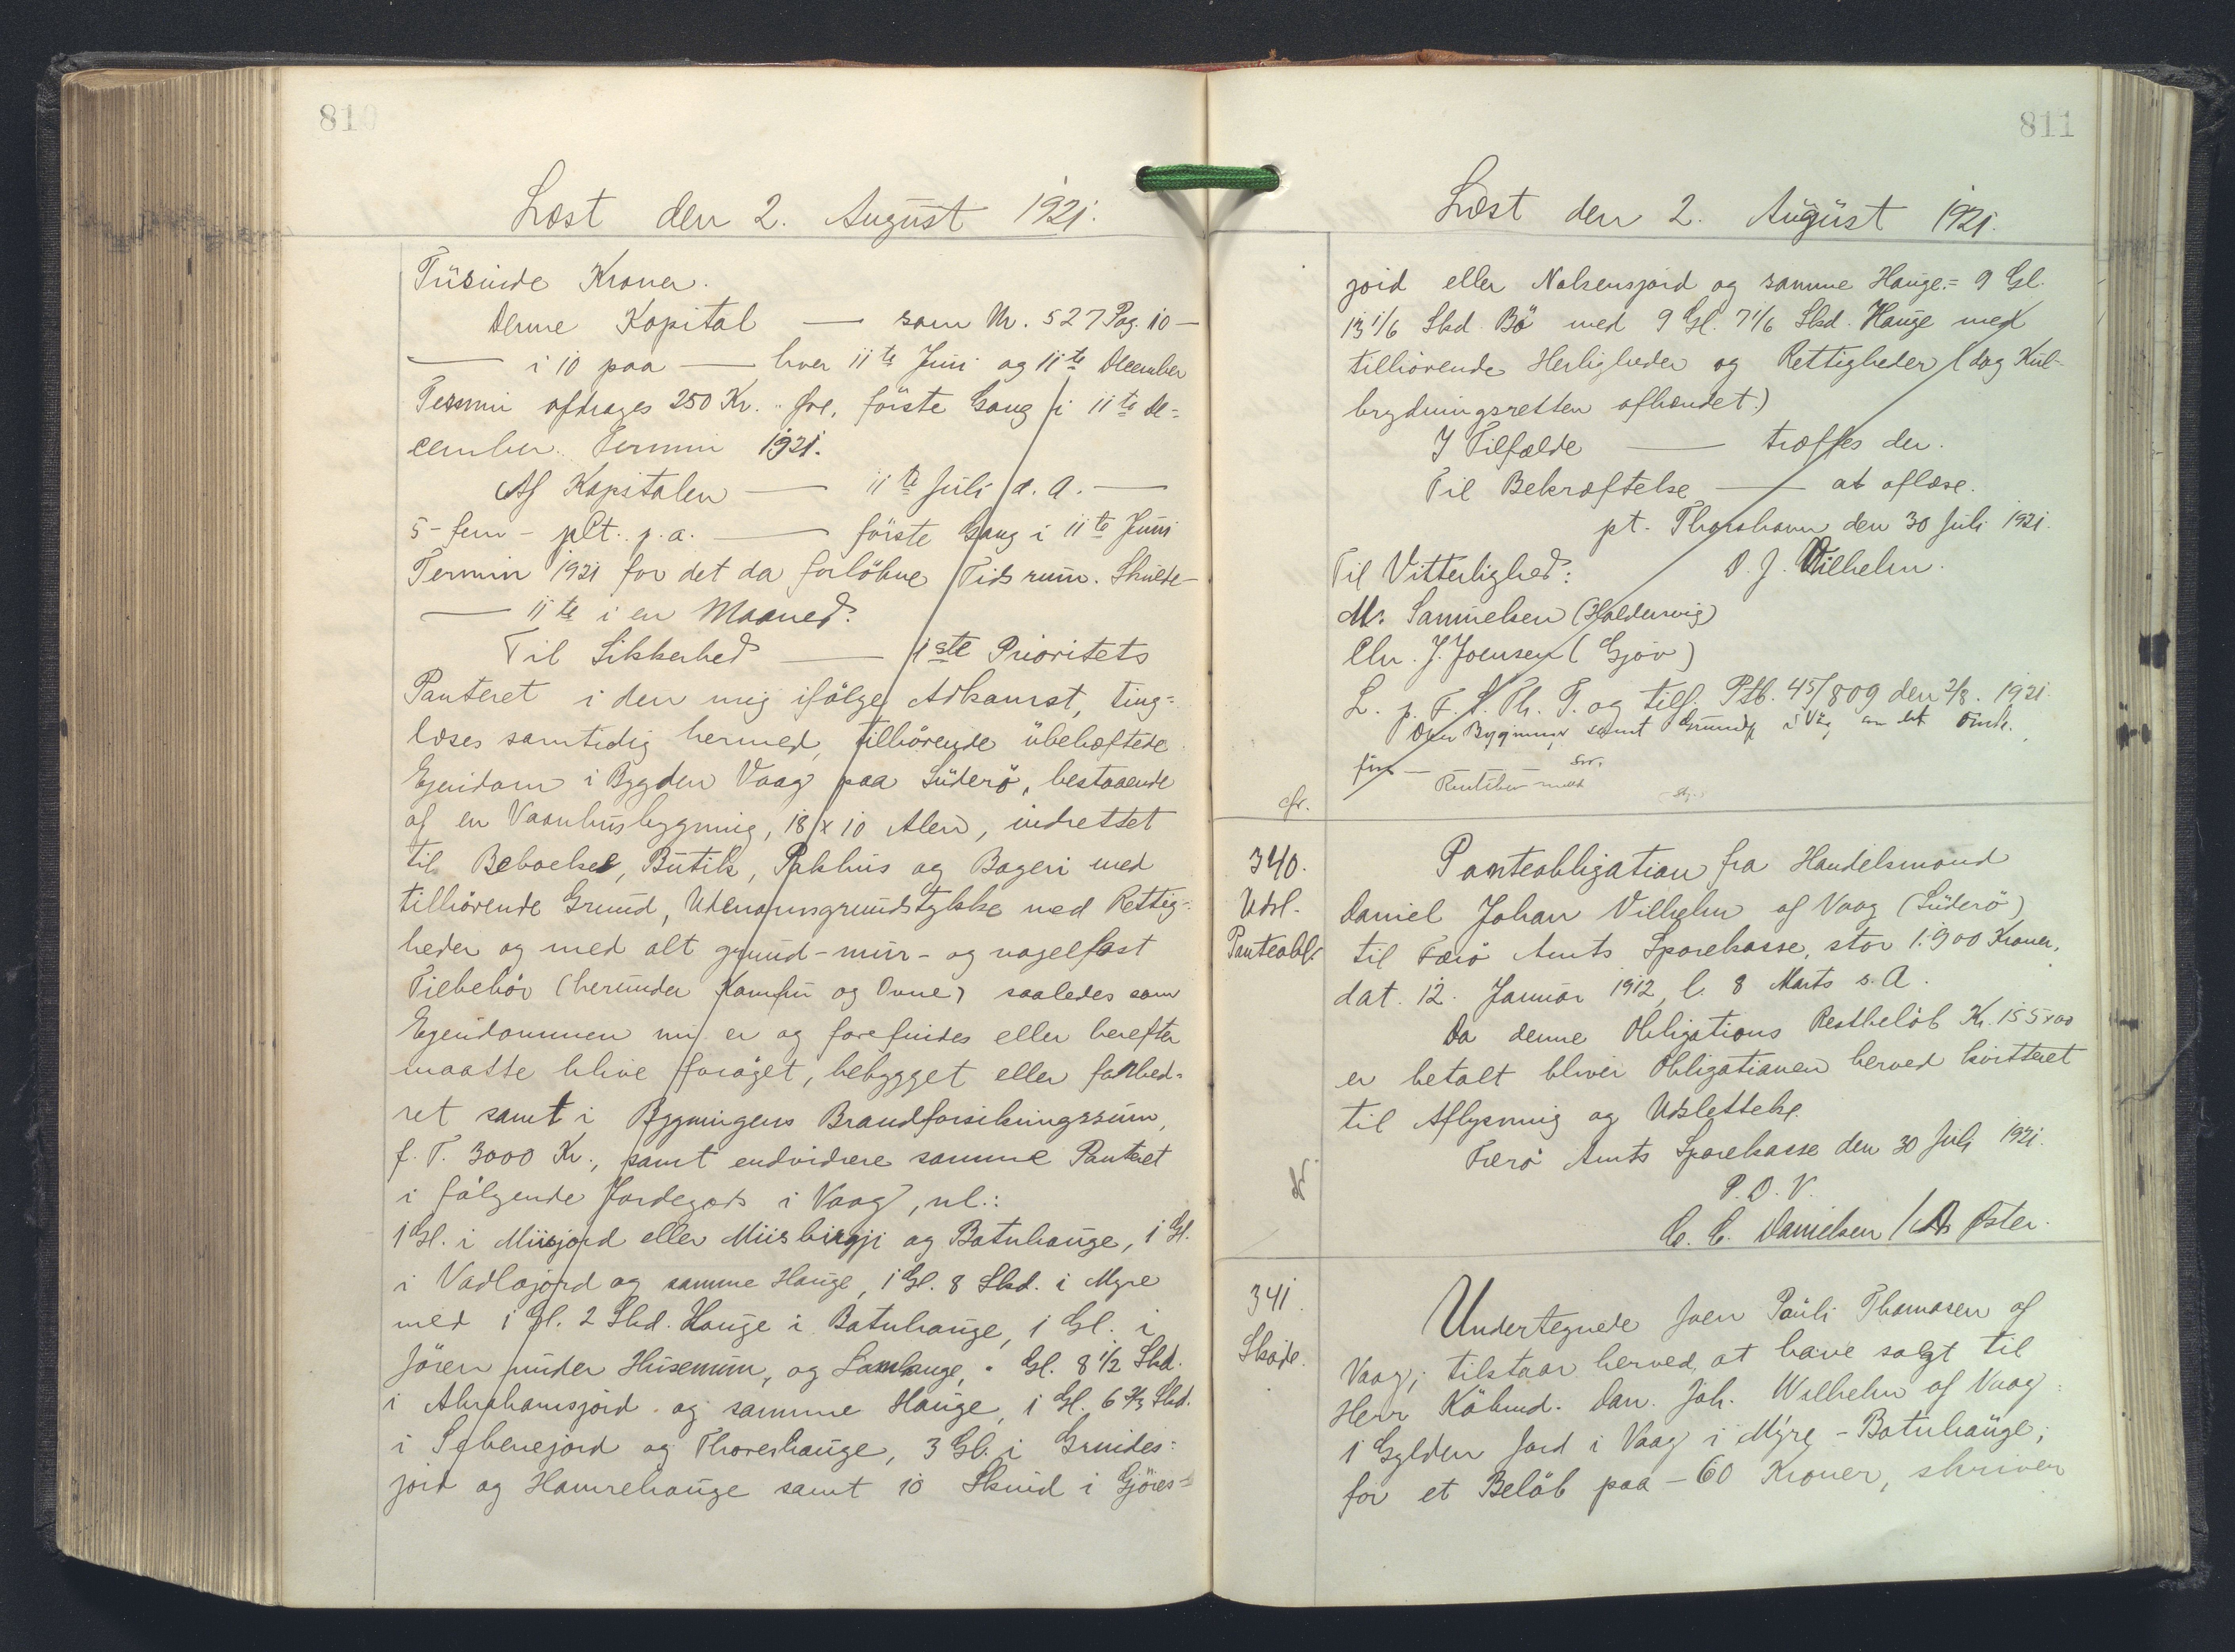 810
Læst den 2. August 1921.
Tusinde Kroner.
Denne Kapital — som Nr. 527 Pag. 10 —
— i 10 paa — hver 11te Juni og 11te December
Termin afdrages 250 Kr. " Øre, første Gang i 11te De=
cember Termin 1921.
Af Kapitalen — 11te Juli d. A. —
5 - fem - pCt. p. a. — første Gang i 11te Juni
Termin 1921 for det da forløbne Tidsrum. Skulde —
— 11te i en Maaned.
Til Sikkerhed — 1ste Prioritets
Panteret i den mig ifølge Adkomst, ting=
læses samtidig hermed, tilhørende ubehæftede
Ejendom i Bygden Vaag paa Suderø, bestaaende
af en Vaanhusbygning, 18 x 10 Alen, indrettet
til Beboelse, Butik, Pakhus og Bageri med
tilhørende Grund, Udenomsgrundstykke med Rettig=
heder og med alt grund- mur- og nagelfast
Tilbehør (herunder Komfur og Ovne) saaledes som
Ejendommen nu er og forefindes eller herefter
maatte blive forøget, bebygget eller forbed=
ret samt i Bygningens Brandforsikringssum,
f. T. 3000 Kr., samt endvidere samme Panteret
i følgende Jordegods i Vaag, nl.:
1 Gl. i Miisjord eller Miisbirgji og Botnhauge, 1 Gl.
i Vadlajord og samme Hauge, 1 Gl. 8 Skd. i Myre
med 1 Gl. 2 Skd. Hauge i Botnhauge, 1 Gl. i
Jøren under Husenum, og Lamhauge, " Gl. 8 1/2 Skd.
i Abrahamsjord og samme Hauge, 1 Gl. 6 2/3 Skd.
i Sebenejord og Thoreshauge, 3 Gl. i Gruides=
jord og Hamrehauge samt 10 Skind i Gjöres=
811
Læst den 2. August 1921.
jord eller Nolsensjord og samme Hauge = 9 Gl.
13 1/6 Skd. Bø med 9 Gl. 7 1/6 Skd. Hauge med
tilhørende Herligheder og Rettigheder (dog Kul=
brydningsretten afhændet.)
I Tilfælde — træffes der.
Til Bekræftelse — at aflæse.
pt. Thorshavn den 30 Juli 1921.
Til Vitterlighed: D. J. Vilhelm.
M. Samuelsen (Haldersvig)
Chr. J. Joensen (Gjov)
L. p. F. S. Th. T. og tilf. Ptb. 45/809 den 2/8. 1921.
Bygninger samt Grund i
cfr.
340.
Udsl.
Panteobl.
Panteobligation fra Handelsmand
Daniel Johan Vilhelm af Vaag (Suderø)
til Færø Amts Sparekasse, stor 1.900 Kroner,
dat. 12. Januar 1912, l. 8 Marts s. A.
Da denne Obligations Restbeløb Kr. 155 x 00
er betalt bliver Obligationen herved kvitteret
til Aflysning og Udslettelse.
Færø Amts Sparekasse den 30 Juli 1921.
P. D. V.
C. C. Danielsen / A Øster.
341.
Skøde.
Undertegnede Joen Pauli Thomasen af
Vaag, tilstaar herved at have solgt til
Herr Købmd. Dan. Joh. Wilhelm af Vaag:
1 Gylden Jord i Vaag i Myre - Botnhauge,
for et Beløb paa - 60 Kroner, skriver